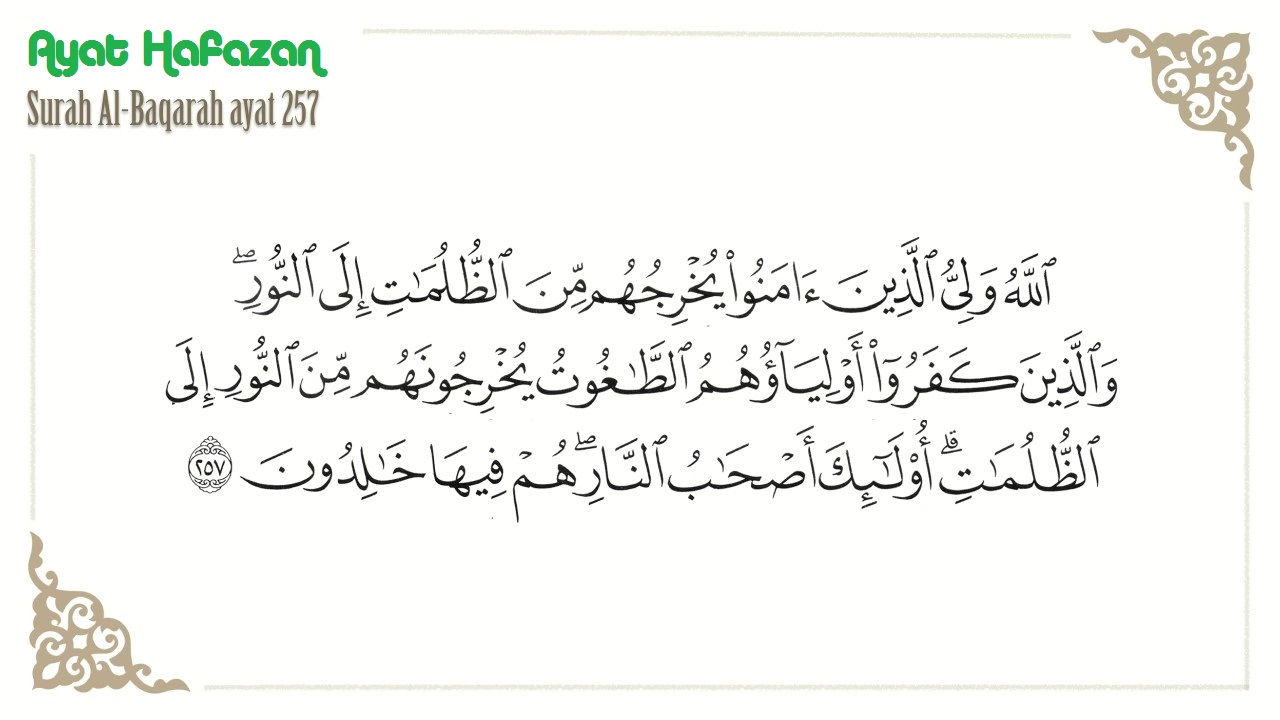 Ayat Hafazan
Surah Al-Baqarah ayat 257
ٱللَّهُ وَلِىُّ ٱلَّذِينَ ءَامَنُوا۟ يُخْرِجُهُم مِّنَ ٱلظُّلُمَـٰتِ إِلَى ٱلنُّورِ ۖ
وَٱلَّذِينَ كَفَرُوٓا۟ أَوْلِيَآؤُهُمُ ٱلطَّـٰغُوتُ يُخْرِجُونَهُم مِّنَ ٱلنُّورِ إِلَى
ٱلظُّلُمَـٰتِ ۗ أُو۟لَـٰٓئِكَ أَصْحَـٰبُ ٱلنَّارِ ۖ هُمْ فِيهَا خَـٰلِدُونَ ٢٥٧